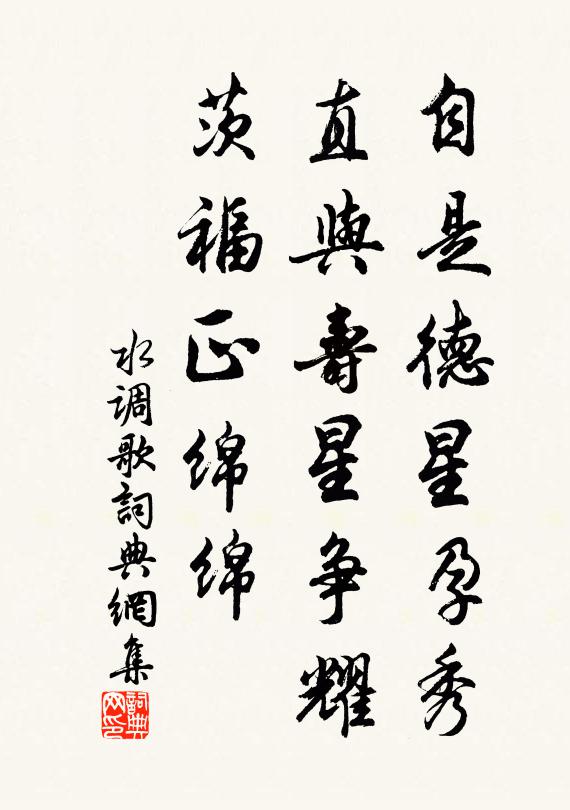 自是德星孕秀
直與壽星争耀
茨福正綿綿
水调歌詞典網集
詞典网印